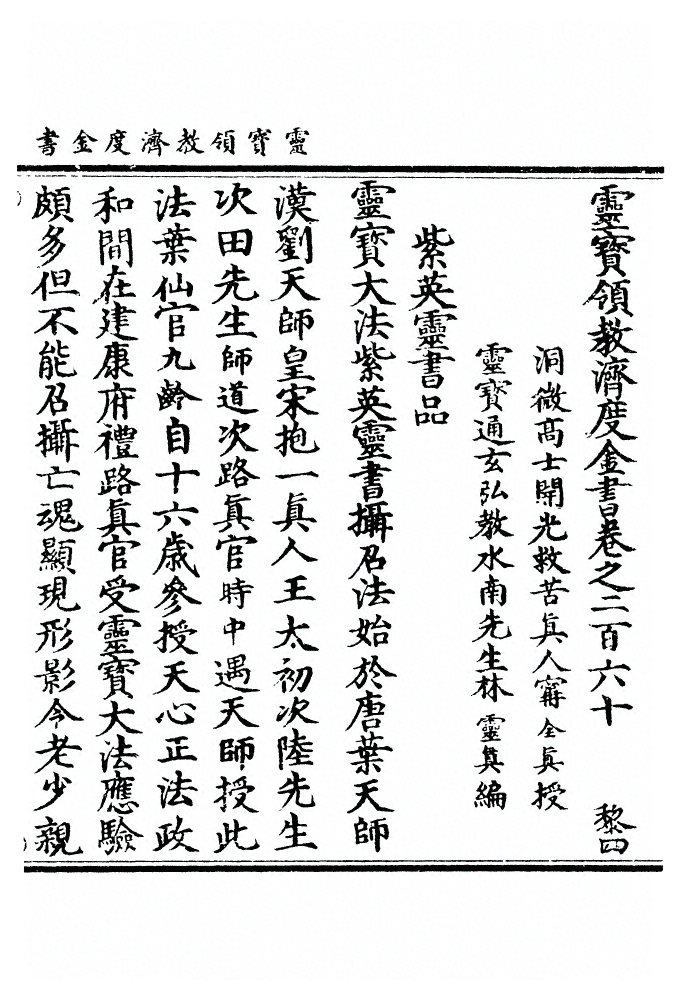 靈寶領教濟度金書
靈寶領教濟度金書卷之二百六十　黎四
洞微高士開光救苦眞人甯全眞授
靈寶通玄弘教水南先生林靈眞編
紫英靈書品
靈寶大法紫英靈書攝召法始於唐葉天師
漢劉天師皇宋抱一眞人王太初次陸先生
次田先生師道次路眞官時中遇天師授此
法葉仙官九齡自十六歲參授天心正法政
和間在建康府禮路眞官受靈寶大法應驗
頗多但不能召攝亡魂顯現形影令老少親